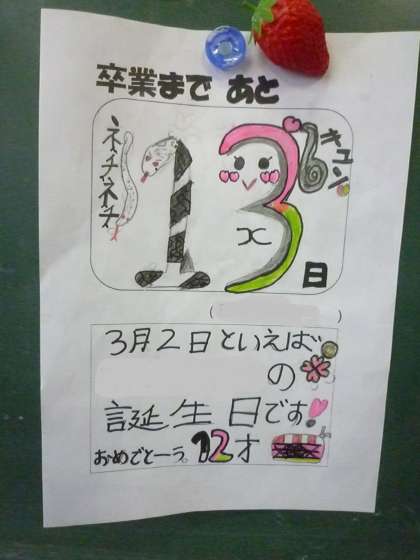 卒業まで あと
ネチネチ
13
キュン
日
3月2日といえば
の
誕生日です!
おめでとーう。12才